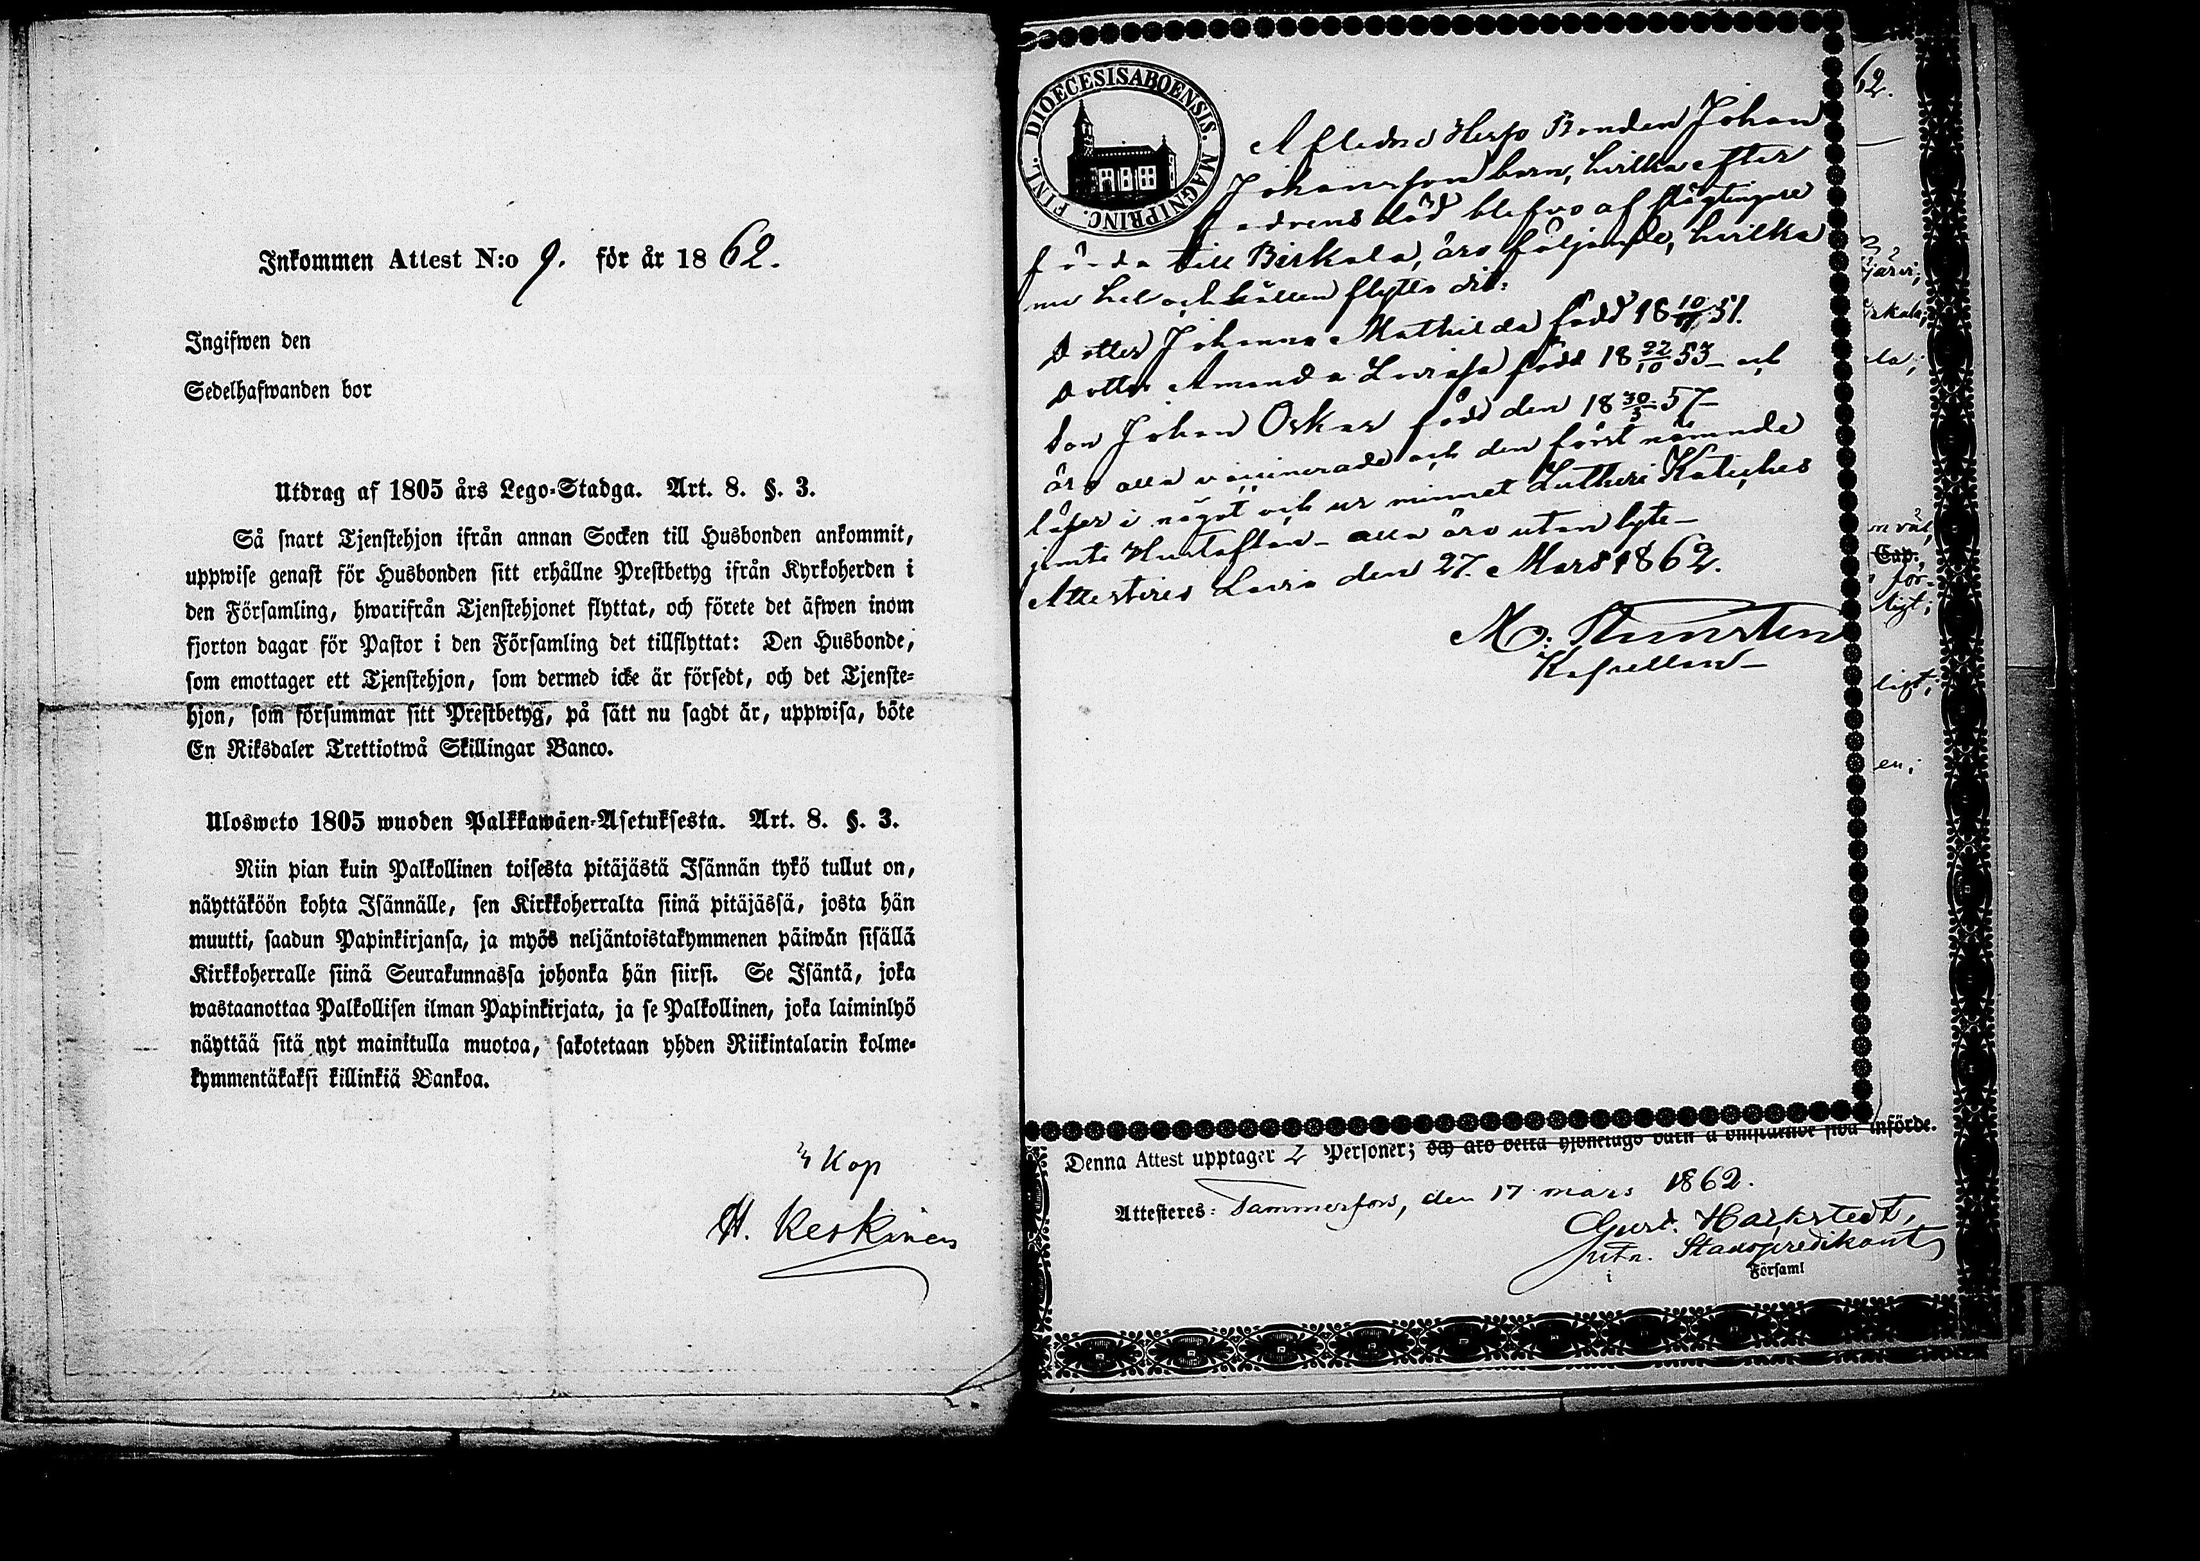 Inkommen Attest N:o 9. för år 1862.
Ingifwen den
Sedelhafwanden bor
Utdrag af 1805 års Lego-Stadga. Art. 8. §. 3.
Så snart Tjenstehjon ifrån annan Socken till Husbonden ankommit,
uppwise genast för Husbonden sitt erhållne Prestbetyg ifrån Kyrkoherden i
den Församling, hwarifrån Tjenstehjonet flyttat, och förete det äfwen inom
fjorton dagar för Pastor i den Församling det tillflyttat: Den Husbonde,
som emottager ett Tjenstehjon, som dermed icke är försedt, och det Tjenste-
hjon, som försummar sitt Prestbetyg, på sätt nu sagdt är, uppwisa, böte
En Riksdaler Trettiotwå Skillingar Banco.
Ulosweto 1805 wuoden Palkkawäen-Asetuksesta. Art. 8. §. 3.
Niin pian kuin Palkollinen toisesta pitäjästä Isännän tykö tullut on,
näyttäköön kohta Isännälle, sen Kirkkoherralta siinä pitäjässä, josta hän
muutti, saadun Papinkirjansa, ja myös neljäntoistakymmenen päiwän sisällä
Kirkkoherralle siinä Seurakunnassa johonka hän siirsi. Se Isäntä, joka
wastaanottaa Palkollisen ilman Papinkirjata, ja se Palkollinen, joka laiminlyö
näyttää sitä nyt mainitulla muotoa, sakotetaan yhden Riikintalarin kolme-
kymmentäkaksi killinkiä Bankoa.
Kop
H. Keskinen
DIOECESIS ABOENSIS. MAGNI PRINC. FINL.
Aflidne Bonden Johan
Johansson barn, hvilka efter
fadrens död blefvo af slägtingare
förda till Birkala, äro följande, hvilka
nu hel och hållen flytta dit:
Dotter Johanna Mathilda född 18 10/11 51.
Dotter Amanda Lovisa född 18 22/10 53 och
Son Johan Oskar född den 18 30/5 57
äro alla vaccinerade och den först nämnde
läser i något och ur minnet Lutheri Kateches
jemte Hustaflan - alla äro utan lyte -
Attesteres den 27. Mars 1862.
M:
Kapellan
62.
järvi;
rkala;
ala;
n väl,
Cap.,
för-
ligt;
ligt;
en;
införde.
Denna Attest upptager 2 Personer; och äro detta hjonelags barn å omstående sida
Attesteres: Tammerfors, den 17 mars 1862.
Gust. Hackstedt,
Stadspredikant
i Församl